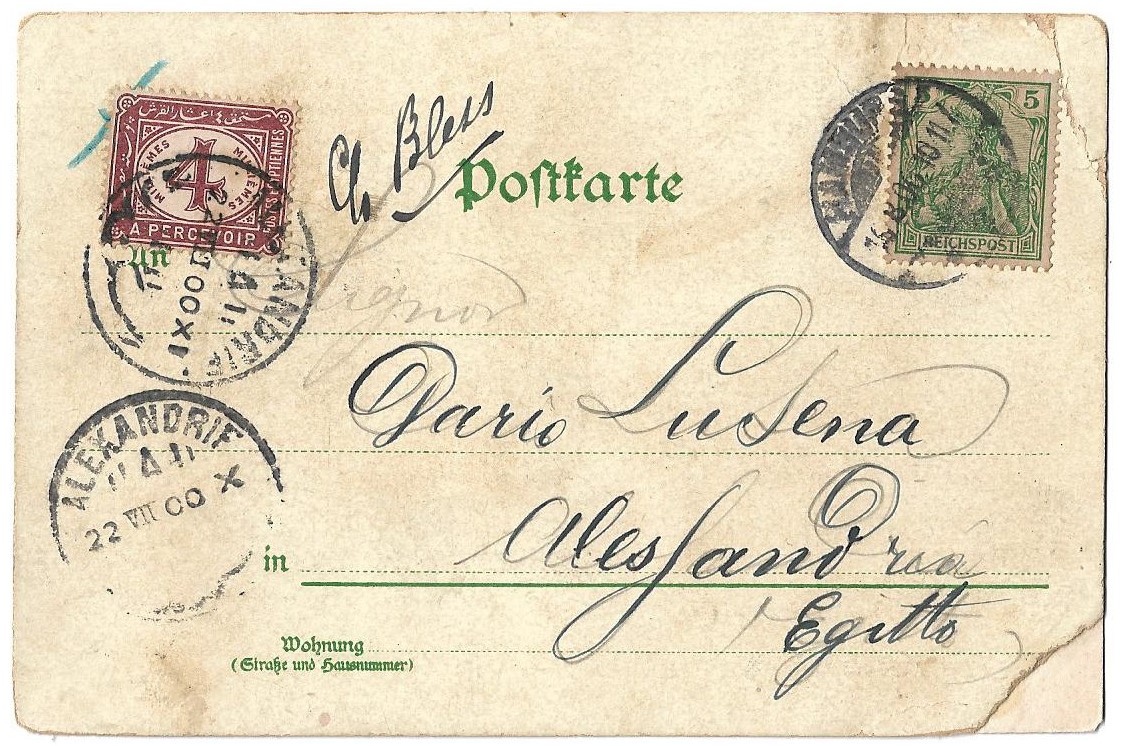 Ch Bless
Postkarte
4
MILLIEMES MILLIEMES
POSTES EGYPTIENNES
A PERCEVOIR
5
REICHSPOST
An
Signor
Dario Lusena
ALEXANDRIE
22 VII 00 X
in
Alessandria
Egitto
Wohnung
(Straße und Hausnummer)